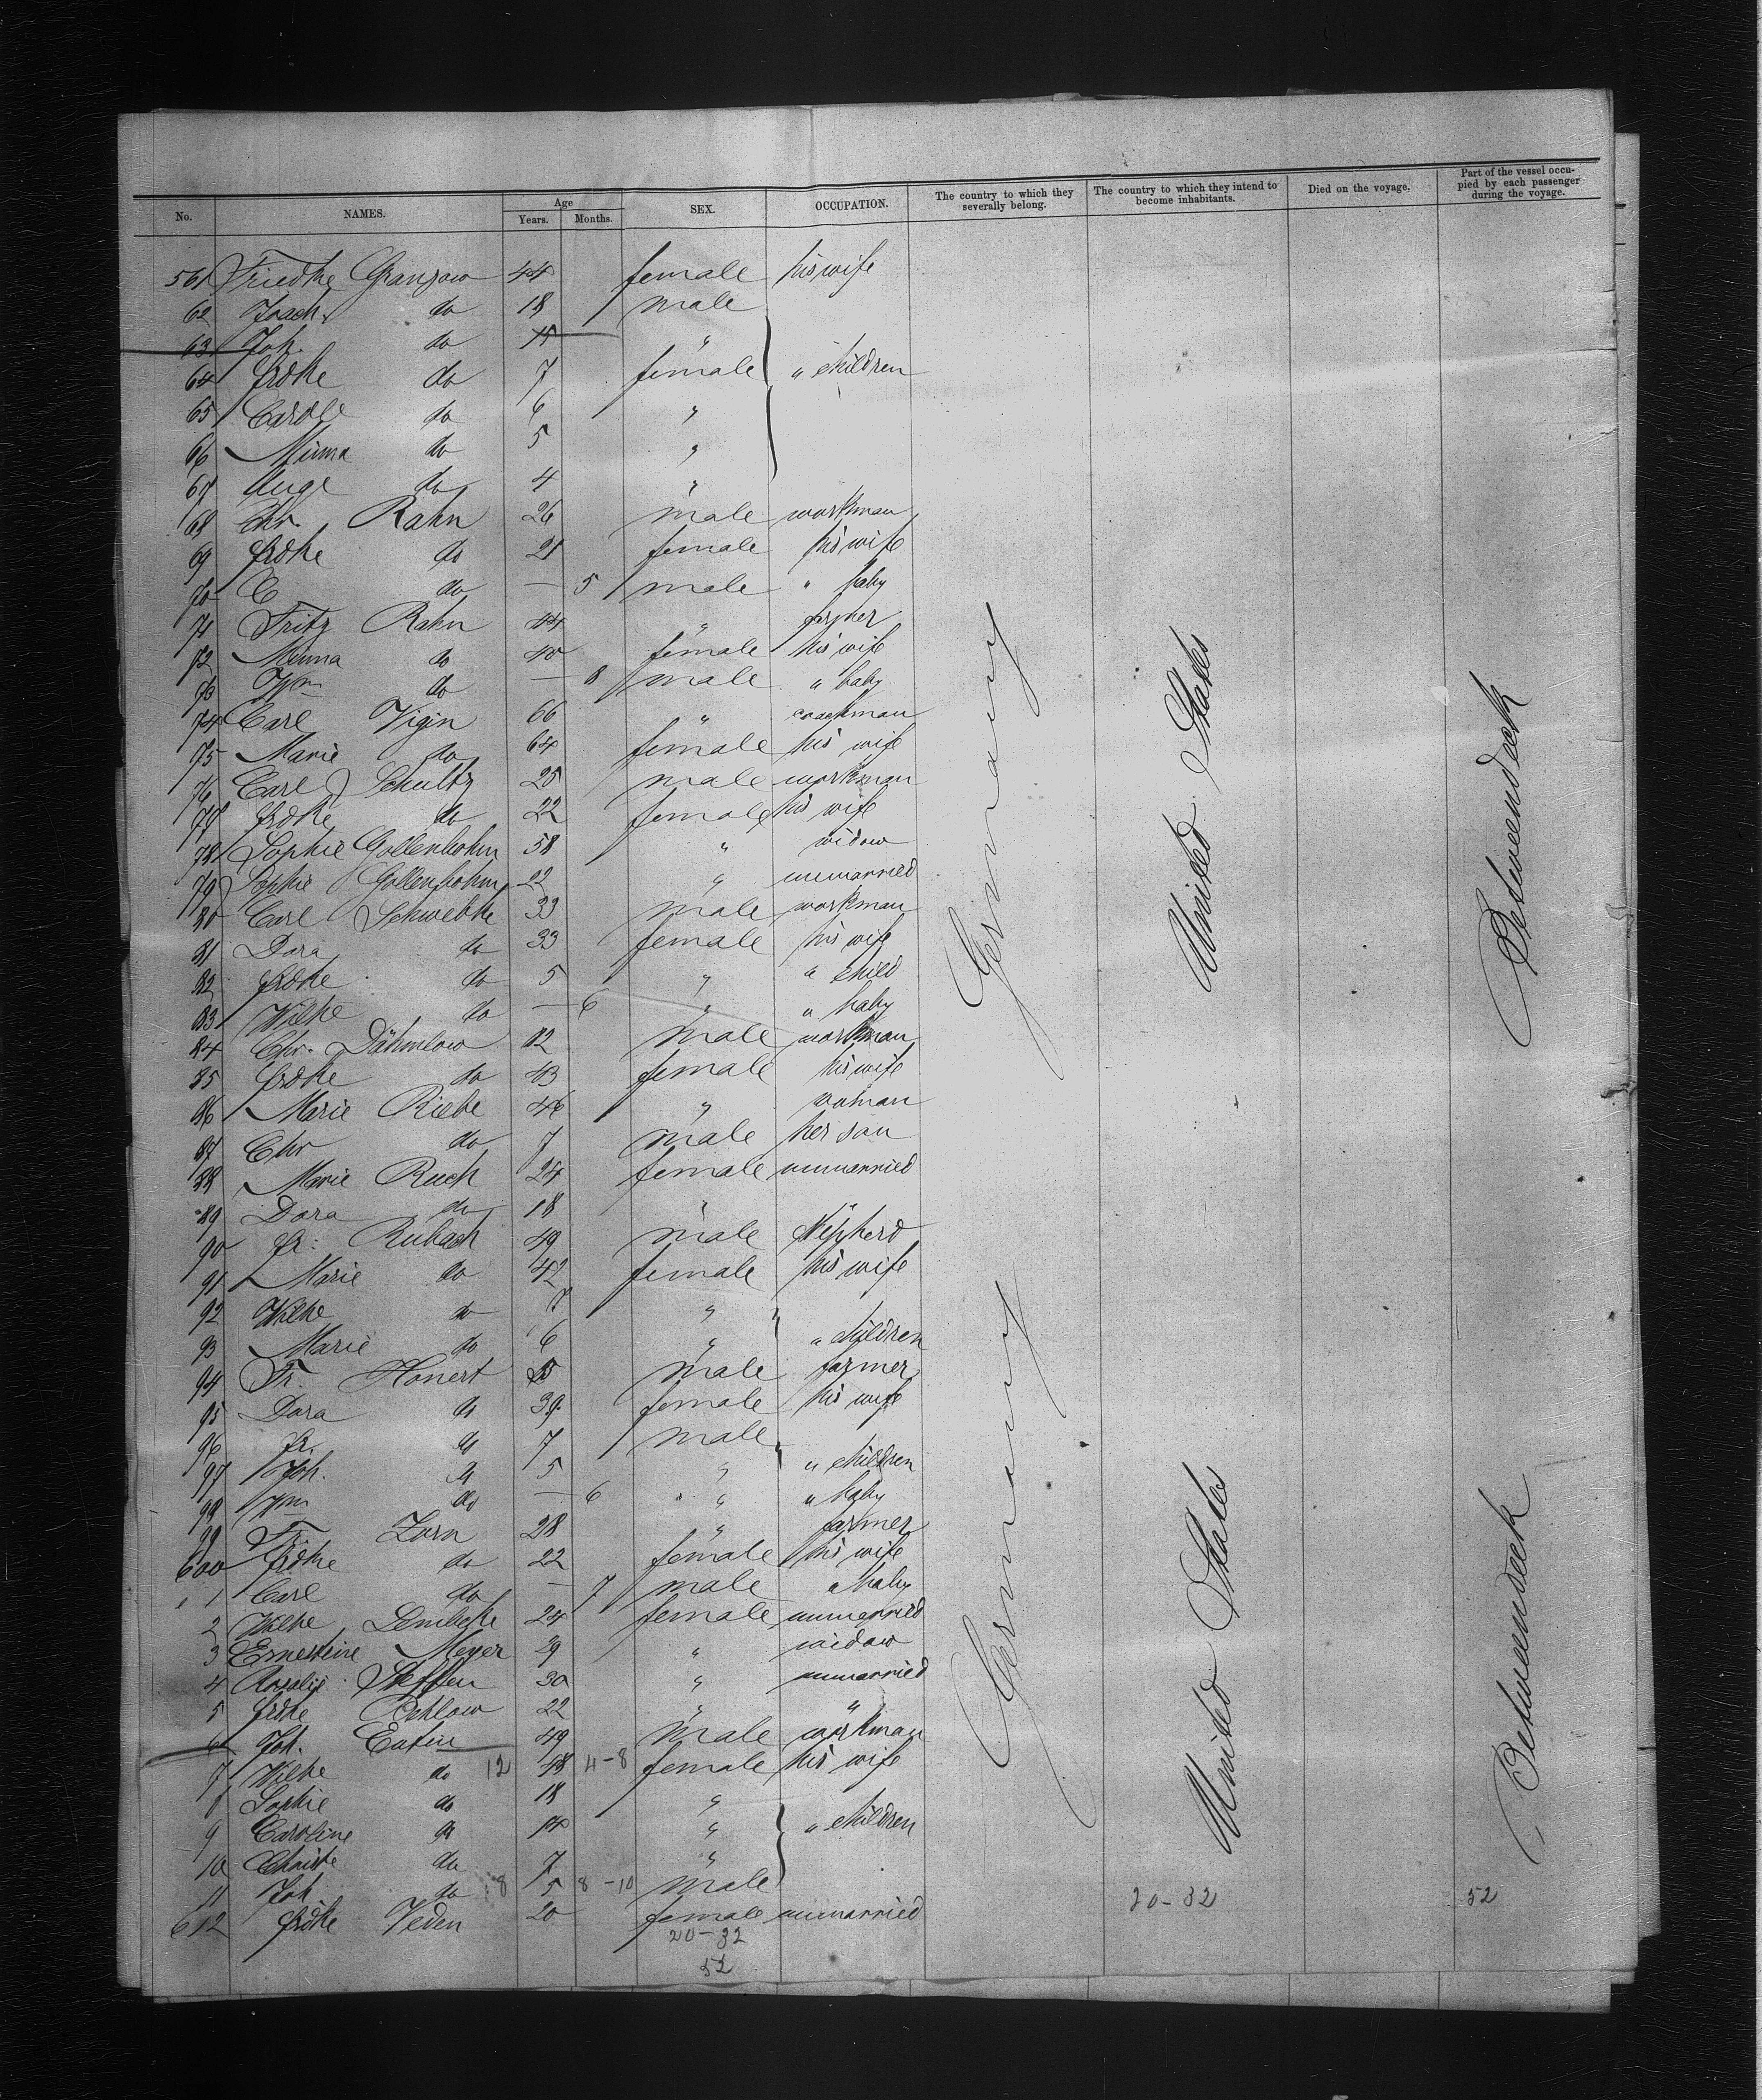 No. NAMES. Age Years. Months. SEX. OCCUPATION. The country to which they severally belong. The country to which they intend to become inhabitants. Died on the voyage. Part of the vessel occupied by each passenger during the voyage.
561 Friedke Granzow 44 female his wife
62 Joach. do 18 male
63 Joh. do 15 "
64 Frdke do 7 female " children
65 Carole do 6 "
66 Minna do 5 "
67 Auge do 4 "
68 Chr. Rahn 26 male workman
69 Frdke do 21 female his wife
70 C do — 5 male " baby
71 Fritz Rahn 44 " farmer
72 Minna do 40 female his wife
73 Wm do — 8 male " baby
74 Carl Vigin 66 " coachman
75 Marie do 64 female his wife
76 Carl Schultz 25 male workman
77 Frdke do 22 female his wife
78 Sophie Gollenbohm 58 " widow
79 Sophie Gollenbohm 22 " unmarried
80 Carl Schwebke 33 male workman
81 Dora do 33 female his wife
82 Frdke do 5 " " child
83 Wilhe do — 6 " " baby
84 Chr. Dähmlow 42 male workman
85 Frdke do 43 female his wife
86 Marie Riebe 46 " woman
87 Chr do 7 male her son
88 Marie Ruch 24 female unmarried
89 Dora do 18 " "
90 Fr. Rubach 49 male shepherd
91 Marie do 42 female his wife
92 Wilhe do 7 "
93 Marie do 6 " " children
94 Fr. Honert male farmer
95 Dora do 39 female his wife
96 Fr. do 7 male
97 Joh. do 5 " " children
98 Wm do — 6 " " baby
99 Fr. Zorn 28 " farmer
600 Frdke do 22 female his wife
1 Carl do — 7 male " baby
2 Wilhe Lembcke 24 female unmarried
3 Ernestine Meyer 29 " widow
4 Rosalie Steffen 30 " unmarried
5 Frdke Oehlow 22 " "
6 Joh. Eutin 49 male workman
7 Wilhe do 12 48 4-8 female his wife
8 Sophie do 18 "
9 Caroline do 14 " " children
10 Christe do 7 "
11 Joh do 8 5 8-10 male
612 Frdke Veden 20 female unmarried
20-32
52
Germany
Germany
United States
United States
20-32
Betweendeck
Betweendeck
52